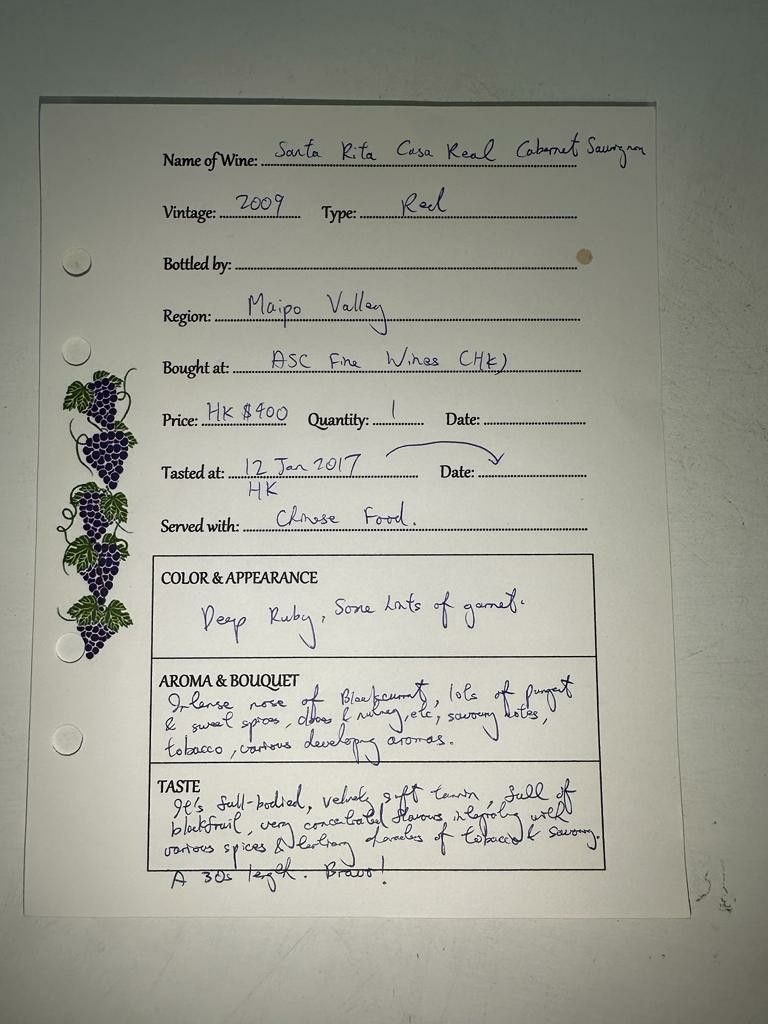 Name of Wine: Santa Rita Casa Real Cabernet Sauvignon
Vintage: 2009 Type: Red
Bottled by:
Region: Maipo Valley
Bought at: ASC Fine Wines (HK)
Price: HK $400 Quantity: 1 Date:
Tasted at: 12 Jan 2017 Date:
HK
Served with: Chinese Food.
COLOR & APPEARANCE
Deep Ruby, Some hints of garnet.
AROMA & BOUQUET
Intense nose of Blackcurrant, lots of pungent
& sweet spices, cloves & nutmeg, etc, savoury notes,
tobacco, various developing aromas.
TASTE
It's full-bodied, velvety soft tannin, full of
blackfruit, very concentrated flavours integrating with
various spices & tertiary characters of tobacco & savoury.
A 30s length. Bravo!